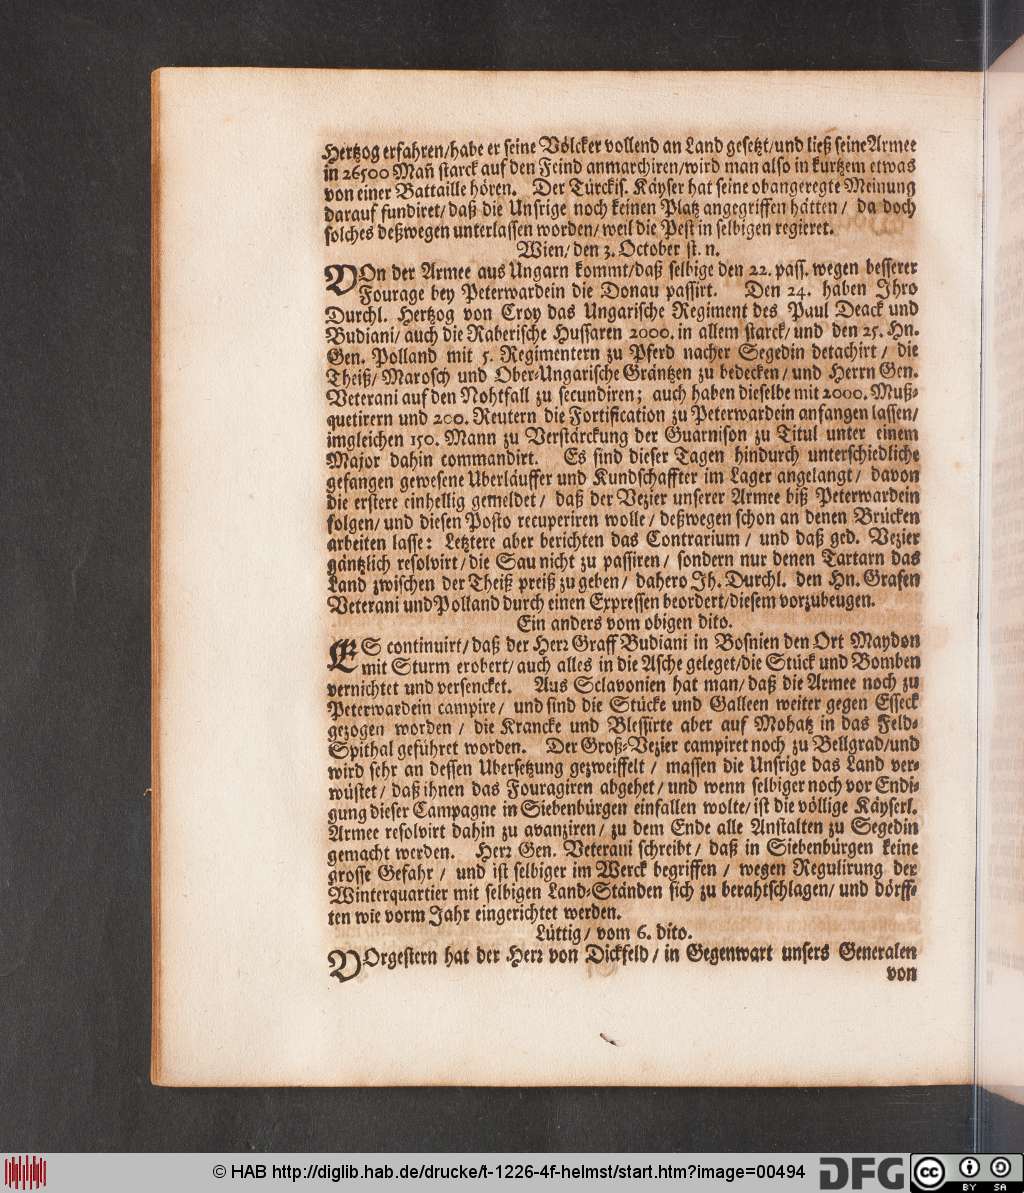 Hertzog erfahren/habe er seine Völcker vollend an Land gesetzt/und ließ seine Armee
in 26500 Mañ starck auf den Feind anmarchiren/wird man also in kurtzem etwas
von einer Battaille hören. Der Türckis. Käyser hat seine obangeregte Meinung
darauf fundiret/daß die Unsrige noch keinen Platz angegriffen hätten/ da doch
solches deßwegen unterlassen worden/weil die Pest in selbigen regieret.
Wien/den 3. October st. n.
VOn der Armee aus Ungarn kommt/daß selbige den 22. pass. wegen besserer
Fourage bey Peterwardein die Donau passirt. Den 24. haben Ihro
Durchl. Hertzog von Croy das Ungarische Regiment des Paul Deack und
Budiani/auch die Raberische Hussaren 2000. in allem starck/und den 25. Hn.
Gen. Polland mit 5. Regimentern zu Pferd nacher Segedin detachirt/ die
Theiß/Marosch und Ober-Ungarische Gräntzen zu bedecken/und Herrn Gen.
Veterani auf den Nohtfall zu secundiren; auch haben dieselbe mit 2000. Muß-
quetirern und 200. Reutern die Fortification zu Peterwardein anfangen lassen/
imgleichen 150. Mann zu Verstärckung der Guarnison zu Titul unter einem
Major dahin commandirt. Es sind dieser Tagen hindurch unterschiedliche
gefangen gewesene Uberläuffer und Kundschaffter im Lager angelangt/ davon
die erstere einhellig gemeldet/ daß der Vezier unserer Armee biß Peterwardein
folgen/und diesen Posto recuperiren wolle/deßwegen schon an denen Brücken
arbeiten lasse: Letztere aber berichten das Contrarium/ und daß ged. Vezier
gäntzlich resolvirt/die Sau nicht zu passiren/ sondern nur denen Tartarn das
Land zwischen der Theiß preiß zu geben/ dahero Ih. Durchl. den Hn. Grafen
Veterani und Polland durch einen Expressen beordert/diesem vorzubeugen.
Ein anders vom obigen dito.
ES continuirt/daß der Herr Graff Budiani in Bosnien den Ort Maydon
mit Sturm erobert/auch alles in die Asche geleget/die Stück und Bomben
vernichtet und versencket. Aus Sclavonien hat man/daß die Armee noch zu
Peterwardein campire/ und sind die Stücke und Galleen weiter gegen Esseck
gezogen worden/ die Krancke und Blessirte aber auf Mohatz in das Feld-
Spithal geführet worden. Der Groß-Vezier campiret noch zu Bellgrad/und
wird sehr an dessen Ubersetzung gezweiffelt/ massen die Unsrige das Land ver-
wüstet/ daß ihnen das Fouragiren abgehet/und wenn selbiger noch vor Endi-
gung dieser Campagne in Siebenbürgen einfallen wolte/ist die völlige Käyserl.
Armee resolvirt dahin zu avanziren/ zu dem Ende alle Anstalten zu Segedin
gemacht werden. Herr Gen. Veterani schreibt/ daß in Siebenbürgen keine
grosse Gefahr/ und ist selbiger im Werck begriffen/ wegen Regulirung der
Winterquartier mit selbigen Land-Ständen sich zu berahtschlagen/und dörff-
ten wie vorm Jahr eingerichtet werden.
Lüttig/ vom 6. dito.
VOrgestern hat der Herr von Dickfeld/ in Gegenwart unsers Generalen
von
© HAB http://diglib.hab.de/drucke/t-1226-4f-helmst/start.htm?image=00494
DFG
cc BY SA